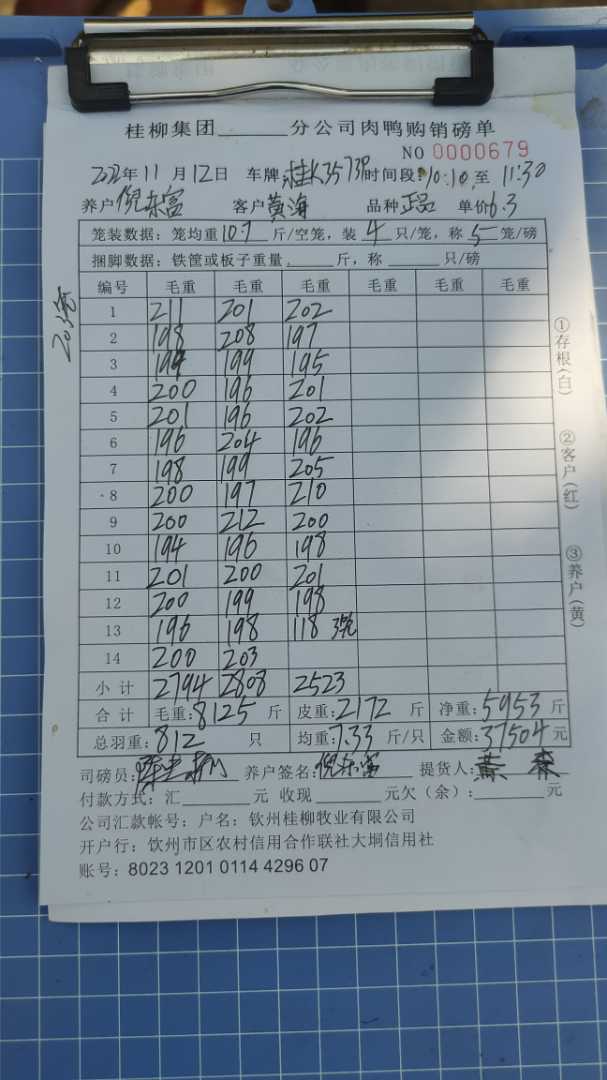 桂柳集团______分公司肉鸭购销磅单
NO 0000679
2022年11月12日 车牌:桂K3573P 时间段:10:10至11:30
养户倪东富 客户黄海 品种正品 单价6.3
笼装数据: 笼均重10.7斤/空笼, 装4只/笼, 称5笼/磅
捆脚数据: 铁筐或板子重量______斤, 称______只/磅
编号 毛重 毛重 毛重 毛重 毛重 毛重
1 211 201 202
2 198 208 197
3 194 199 195
4 200 196 201
5 201 196 202
6 196 204 196
7 198 199 205
8 200 197 210
9 200 212 200
10 194 196 198
11 201 200 201
12 200 199 198
13 196 198 118 3笼
14 200 203
小计 2794 2808 2523
合计 毛重:8125斤 皮重:2172斤 净重:5953斤
总羽重:812只 均重:7.33斤/只 金额:37504元
司磅员: 养户签名:倪东富 提货人:黄
付款方式: 汇______元 收现______元欠(余):______元
公司汇款帐号: 户名: 钦州桂柳牧业有限公司
开户行: 钦州市区农村信用合作联社大垌信用社
账号: 8023 1201 0114 4296 07
203笼
①存根(白)
②客户(红)
③养户(黄)